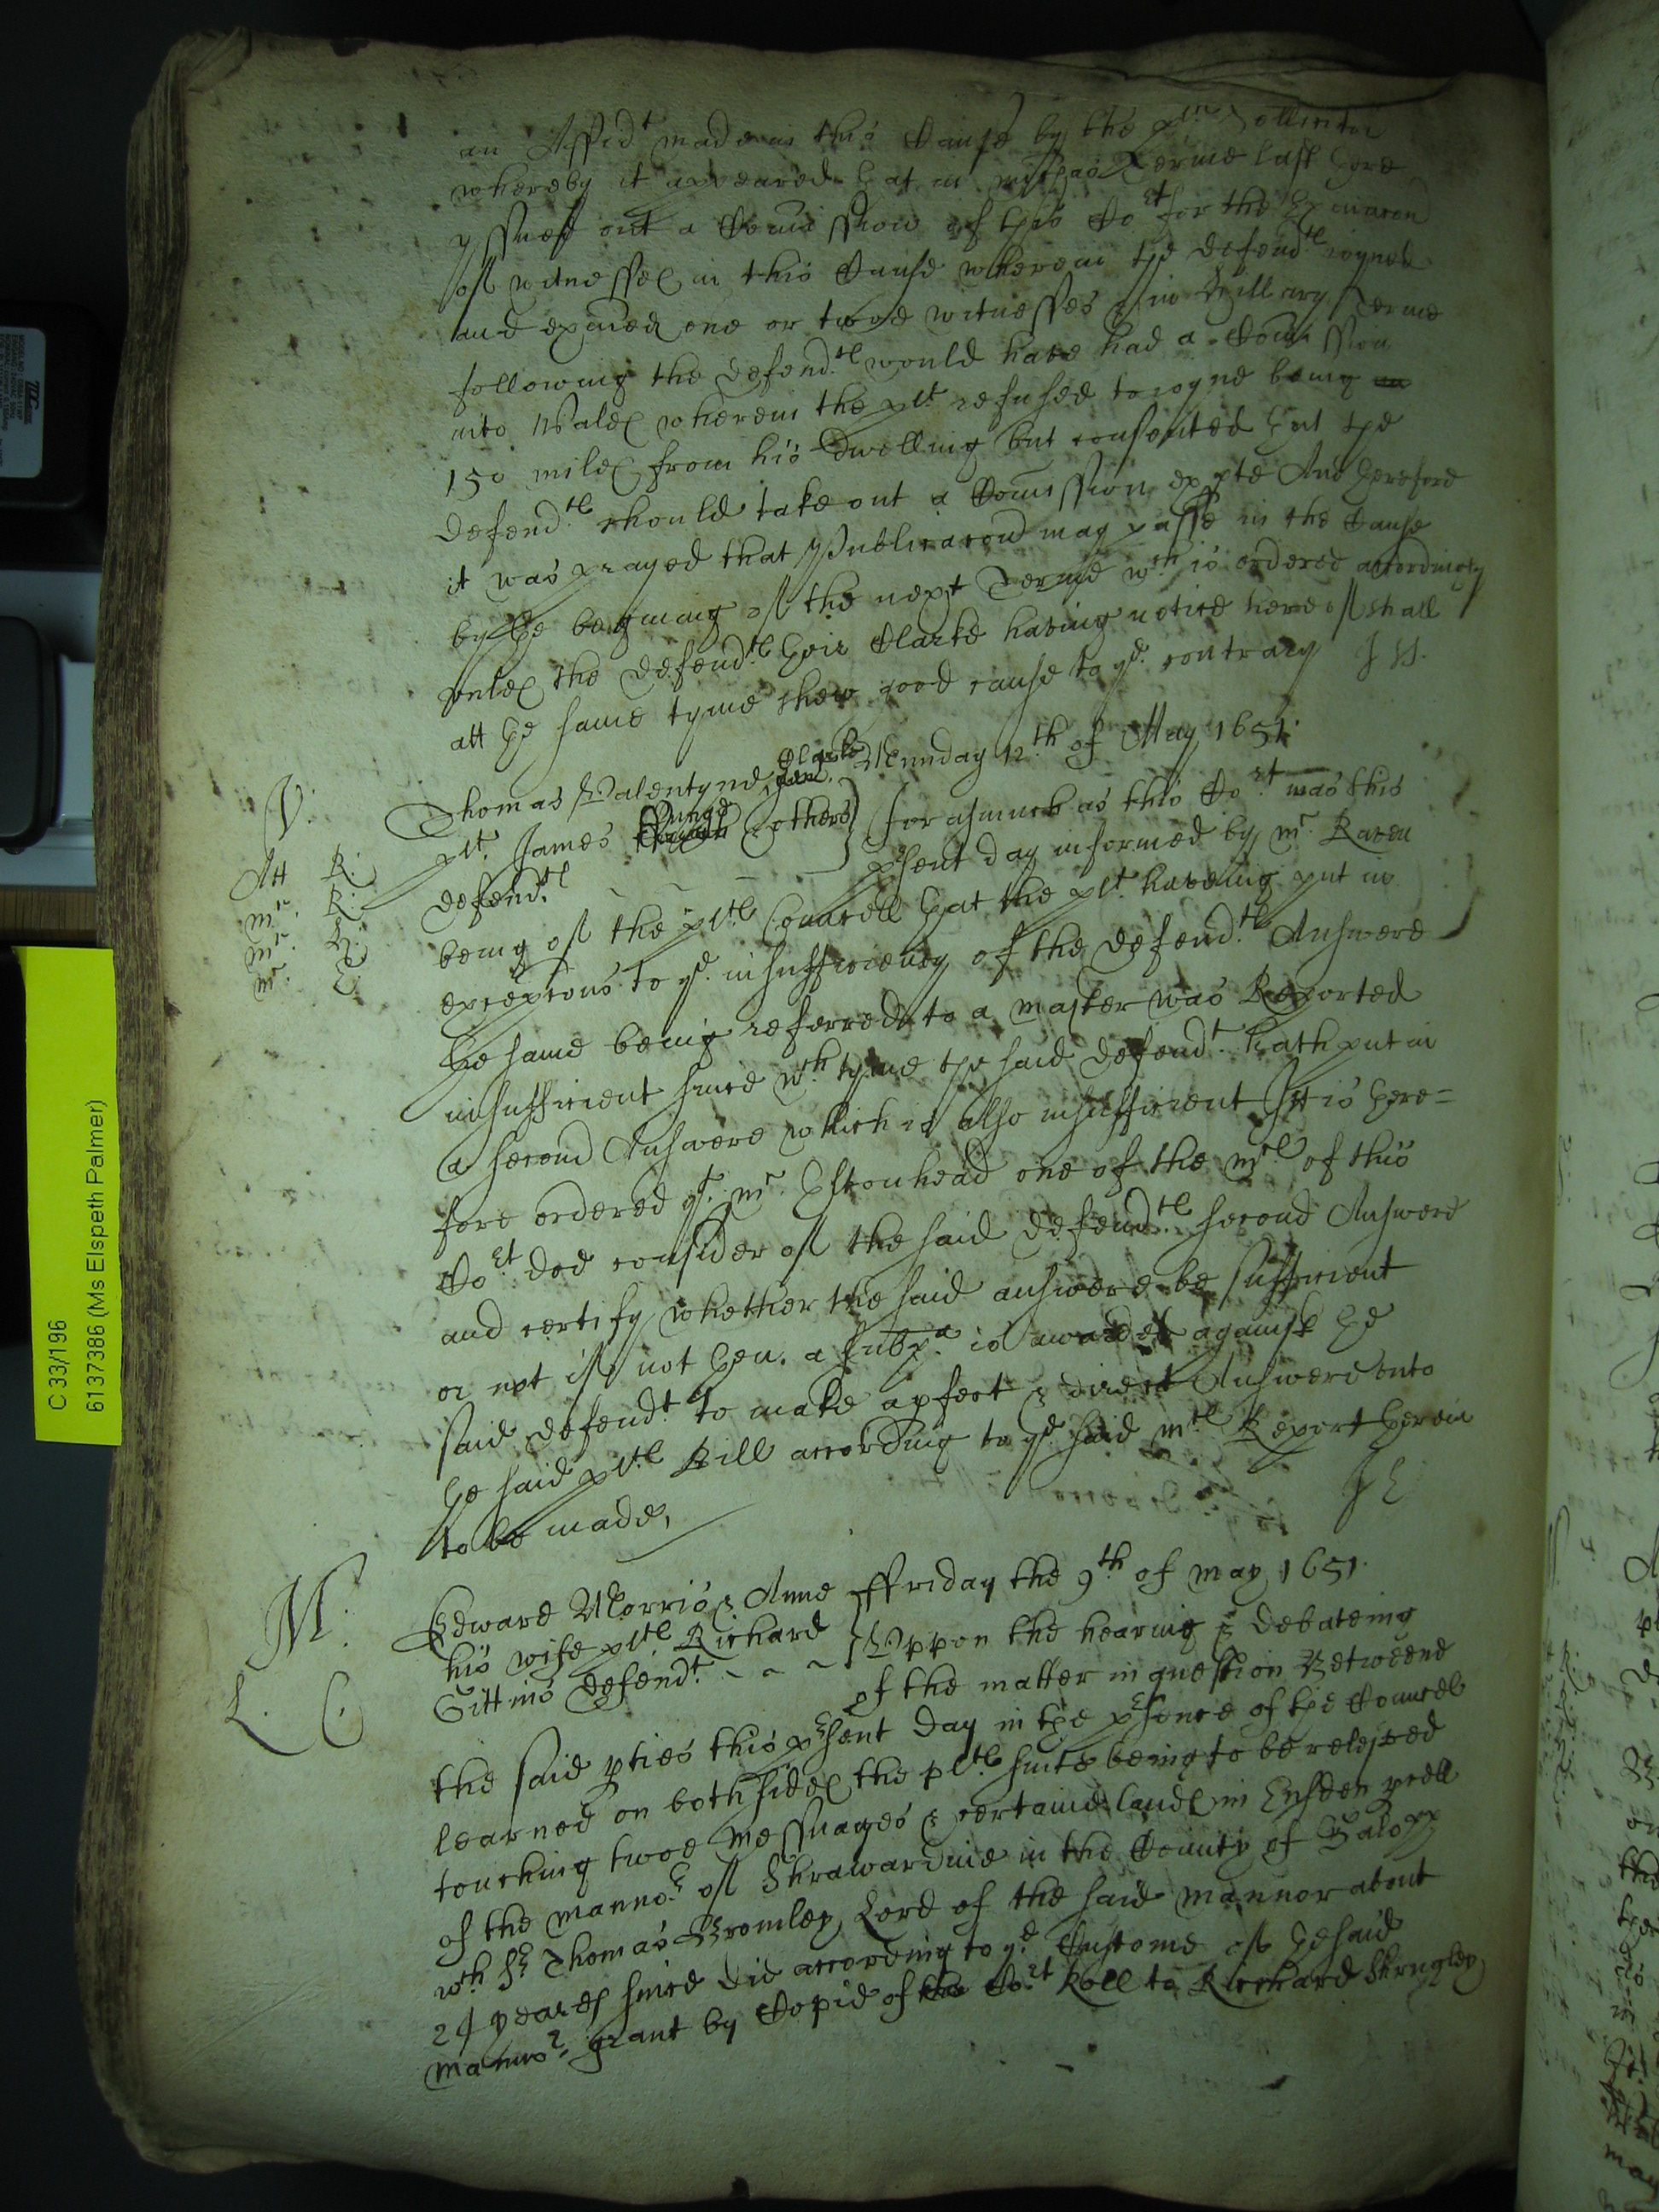 an Affid^t made in this Cause by the pl^ts Sollicitor
whereby it appeared that in Mich'as Terme last there
yssued out a Comission of this Co^rt for the Ex'inacon
of witnesses in this Cause wherein the defend^ts ioyned
and exa'ied one or twoe witnesses & in Hillary Terme
following the defend^ts would have had a Comission
into Wales wherein the pl^t refused to ioyne being
150 miles from his dwelling but consented that the
defend^ts should take out a Comission ex p'te And therefore
it was prayed that Publicacon may passe in the Cause
by the beginning of the next Terme w^ch is ordered accordingly
unles the defend^ts their Clarke having notice hereof shall
att the same tyme shew good cause to y^e contrary J W.
V. Thomas Valentyne Clarke Munday 12^th of May 1651.
pl^t. James others } forasmuch as this Co^rt was this
Att R:
defend^ts p'sent day informed by m^r. Raven
m^r. R:
being of the pl^ts Councell that the pl^t haveing put in
m^r. H:
excepcons to y^e insufficiency of the defend^ts Answere
m^r. E
the same being referred to a master was Reported
insufficient since w^ch tyme the said defend^t hath put in
a second Answere which is also insufficient It is there=
fore ordered y^t m^r. Estonhead one of the m^rs of this
Co^rt doe consider of the said defend^ts second Answere
and certify whether the said answere be sufficient
or not if not then a subp^a is awarded against the
said defend^t to make a p'fect & direct Answere unto
the said pl^ts Bill according to y^e said m^rs Report therein
to be made, J E
M: Edward Morris & Anne ffriday the 9^th of may 1651.
his wife pl^ts Richard } Uppon the hearing & debateing
L. C
Gittins defend^t. of the matter in question Betweene
the said p'ties this p'sent day in the p'sence of the Councel
learned on both sides the pl^ts suite being to be releived
touching twoe Messuages & certaine lands in Ensden p'cell
of the manno^r of Shrawardine in the County of Salopp
w^ch S^r Thomas Bromley Lord of the said mannor about
24 yeares since did according to y^e Custome of the said
manno^r grant by Copie of Co^rt Roll to Richard Shrugley
C 33/196
6137386 (Ms Elspeth Palmer)